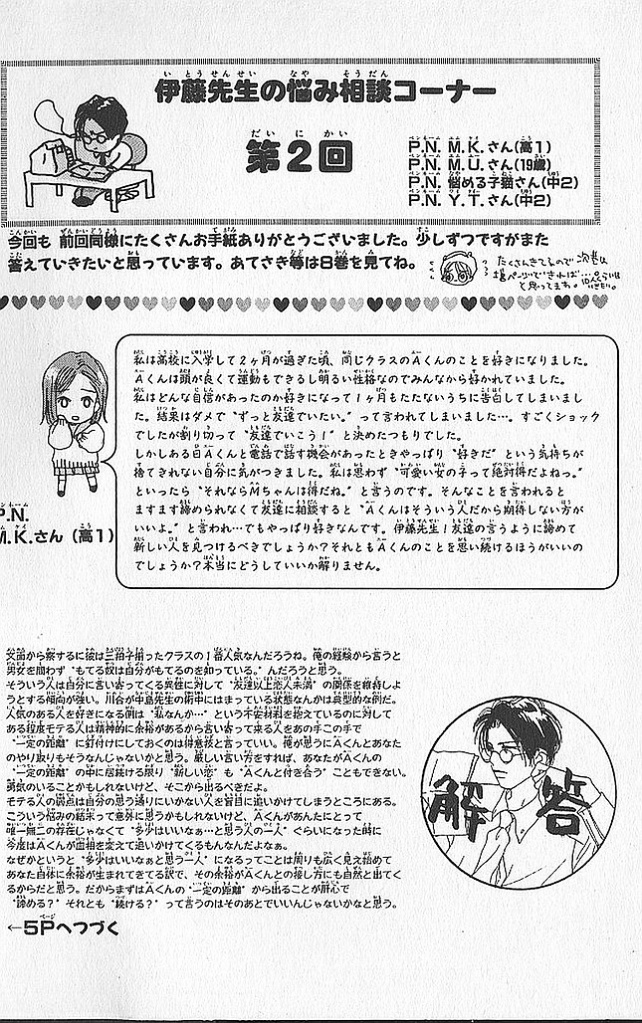 伊藤先生の悩み相談コーナー
第2回
P.N. M.K.さん(高1)
P.N. M.U.さん(19歳)
P.N. 悩める子猫さん(中2)
P.N. Y.T.さん(中2)
今回も 前回同様にたくさんお手紙ありがとうございました。少しずつですがまた
答えていきたいと思っています。あてさき等は8巻を見てね。
たくさんきてるので 次巻は
と思ってます。
私は高校に入学して2ヶ月が過ぎた頃、同じクラスのAくんのことを好きになりました。
Aくんは頭が良くて運動もできるし明るい性格なのでみんなから好かれていました。
私はどんな自信があったのか好きになって1ヶ月もたたないうちに告白してしまいまし
た。結果はダメで〝ずっと友達でいたい。〟って言われてしまいました…。すごくショック
でしたが割り切って〝友達でいこう!〟と決めたつもりでした。
しかしある日Aくんと電話で話す機会があったときやっぱり〝好きだ〟という気持ちが
捨てきれない自分に気がつきました。私は思わず〝可愛い女の子って絶対得だよねっ。〟
といったら〝それならMちゃんは得だね。〟と言うのです。そんなことを言われると
ますます諦められなくて友達に相談すると〝Aくんはそういう人だから期待しない方が
いいよ。〟と言われ…でもやっぱり好きなんです。伊藤先生!友達の言うように諦めて
新しい人を見つけるべきでしょうか?それともAくんのことを思い続けるほうがいいの
でしょうか?本当にどうしていいか解りません。
P.N.
M.K.さん(高1)
文面から察するに彼は三拍子揃ったクラスの1番人気なんだろうね。俺の経験から言うと
男女を問わず〝もてる奴は自分がもてるのを知っている。〟んだろうと思う。
そういう人は自分に言い寄ってくる異性に対して〝友達以上恋人未満〟の関係を維持しよ
うとする傾向が強い。川合が中島先生の術中にはまっている状態なんかは典型的な例だ。
人気のある人を好きになる側は〝私なんか…〟という不安材料を抱えているのに対して
ある程度モテる人は精神的に余裕があるから言い寄って来る人をあの手この手で
〝一定の距離〟に釘付けにしておくのは得意技と言っていい。俺が思うにAくんとあなた
のやり取りもそうなんじゃないかと思う。厳しい言い方をすれば、あなたがAくんの
〝一定の距離〟の中に居続ける限り〝新しい恋〟も〝Aくんと付き合う〟こともできない。
勇気のいることかもしれないけど、そこから出るべきだよ。
モテる人の弱点は自分の思う通りにいかない人を盲目に追いかけてしまうところにある。
こういう悩みの結末って意外に思うかもしれないけど、Aくんがあんたにとって
唯一無二の存在じゃなくて〝多少はいいなぁ…と思う人の一人〟ぐらいになった時に
今度はAくんが血相を変えて追いかけてくるもんなんだよなぁ。
なぜかというと〝多少はいいなぁと思う一人〟になってことは周りも広く見え始めて
あなた自体に余裕が生まれてきてる訳で、その余裕がAくんとの接し方にも自然と出てく
るからだと思う。だからまずはAくんの〝一定の距離〟から出ることが肝心で
〝諦める?〟それとも〝続ける?〟って言うのはそのあとでいいんじゃないかなと思う。
解答
←5Pへつづく